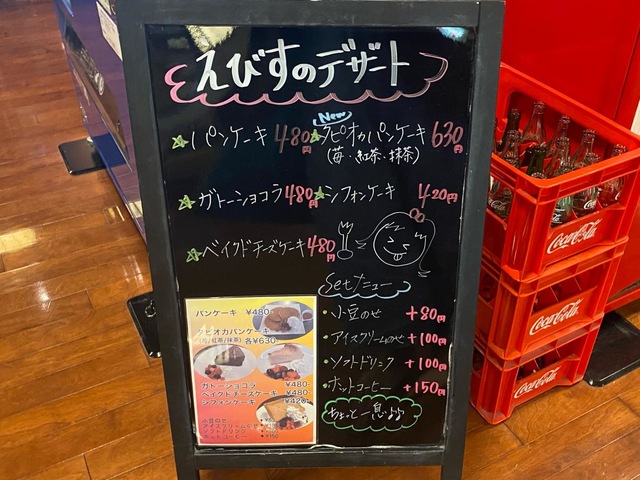 えびすのデザート
パンケーキ 480円
New タピオカパンケーキ 630円
(苺・紅茶・抹茶)
ガトーショコラ 480円
シフォンケーキ 420円
ベイクドチーズケーキ 480円
Setメニュー
・小豆のせ +80円
・アイスクリームのせ +100円
・ソフトドリンク +100円
・ホットコーヒー +150円
ちょっと一息
パンケーキ ¥480-
タピオカパンケーキ
(苺/紅茶/抹茶) 各¥630-
ガトーショコラ ¥480-
ベイクドチーズケーキ ¥480-
シフォンケーキ ¥420-
小豆のせ
アイスクリームのせ
ソフトドリンク
ホットコーヒー ¥150
Coca-Cola
Coca-Cola
Coca-Cola